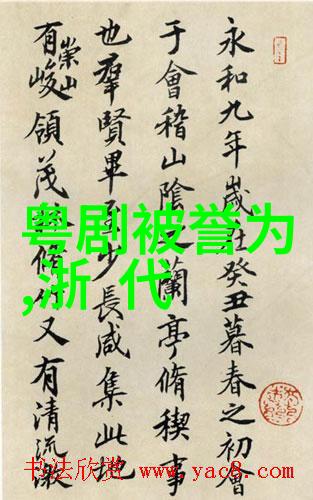 永和九年歲在癸丑暮春之初會
于會稽山陰之蘭亭脩稧事
也羣賢畢至少長咸集此地
有崇山峻領茂林脩竹又有清流激
粤剧被誉为
,浙 代
书法欣赏 www.yac8.com